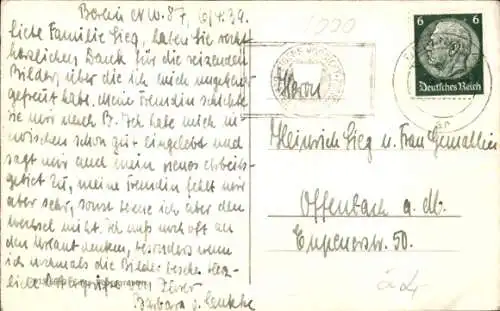 Berlin NW. 87, 6/4.39.
Liebe Familie Sieg, haben Sie recht
herzlichen Dank für die reizenden
Bilder, über die ich mich ungeheuer
gefreut habe. Meine Freundin schickte
sie mir nach B. Ich habe mich in-
zwischen schon gut eingelebt und
sagt mir auch mein neues Arbeits-
gebiet zu, meine Freundin fehlt mir
aber sehr, sonst bereue ich aber den
Wechsel nicht. Ich muß noch oft an
den Urlaub denken, besonders wenn
ich nochmals die Bilder besehe. Herz-
liche Ostergrüße von Ihrer
Barbara v.
1990
6 6
Deutsches Reich
Herrn
Heinrich Sieg u. Frau Gemahlin
Offenbach a. M.
Eupenerstr. 50.